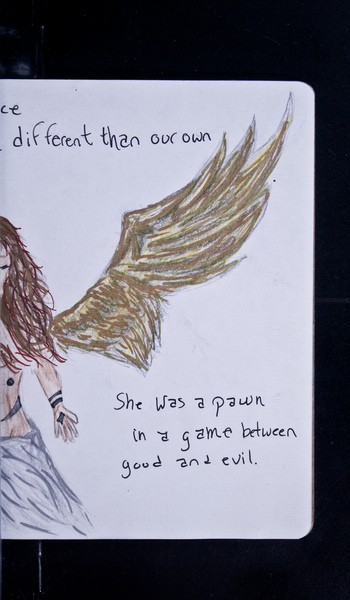 ce
different than our own
She was a pawn
in a game between
good and evil.